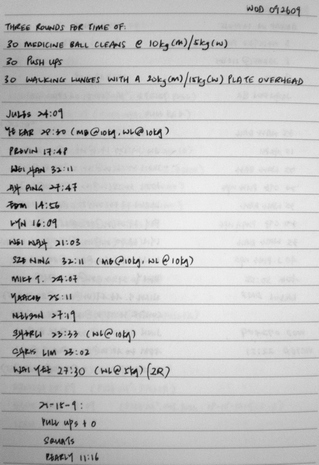 WOD 092609
THREE ROUNDS FOR TIME OF:
30 MEDICINE BALL CLEANS @ 10kg(M)/5kg(W)
30 PUSH UPS
30 WALKING LUNGES WITH A 20kg(M)/15kg(W) PLATE OVERHEAD
JULES 24:09
28:30 (MB@10kg, WL@10kg)
17:48
WEI HAN 32:11
AH PING 27:47
14:56
LYN 16:09
WEI WAH 21:03
SZE NING 32:11 (MB@10kg, WL@10kg)
MIKE T. 24:07
25:11
NELSON 27:19
23:33 (WL@10kg)
CHRIS LIM 23:02
WAI YEE 27:30 (WL@5kg) (2R)
21-15-9:
PULL UPS
SQUATS
PEARLY 11:16